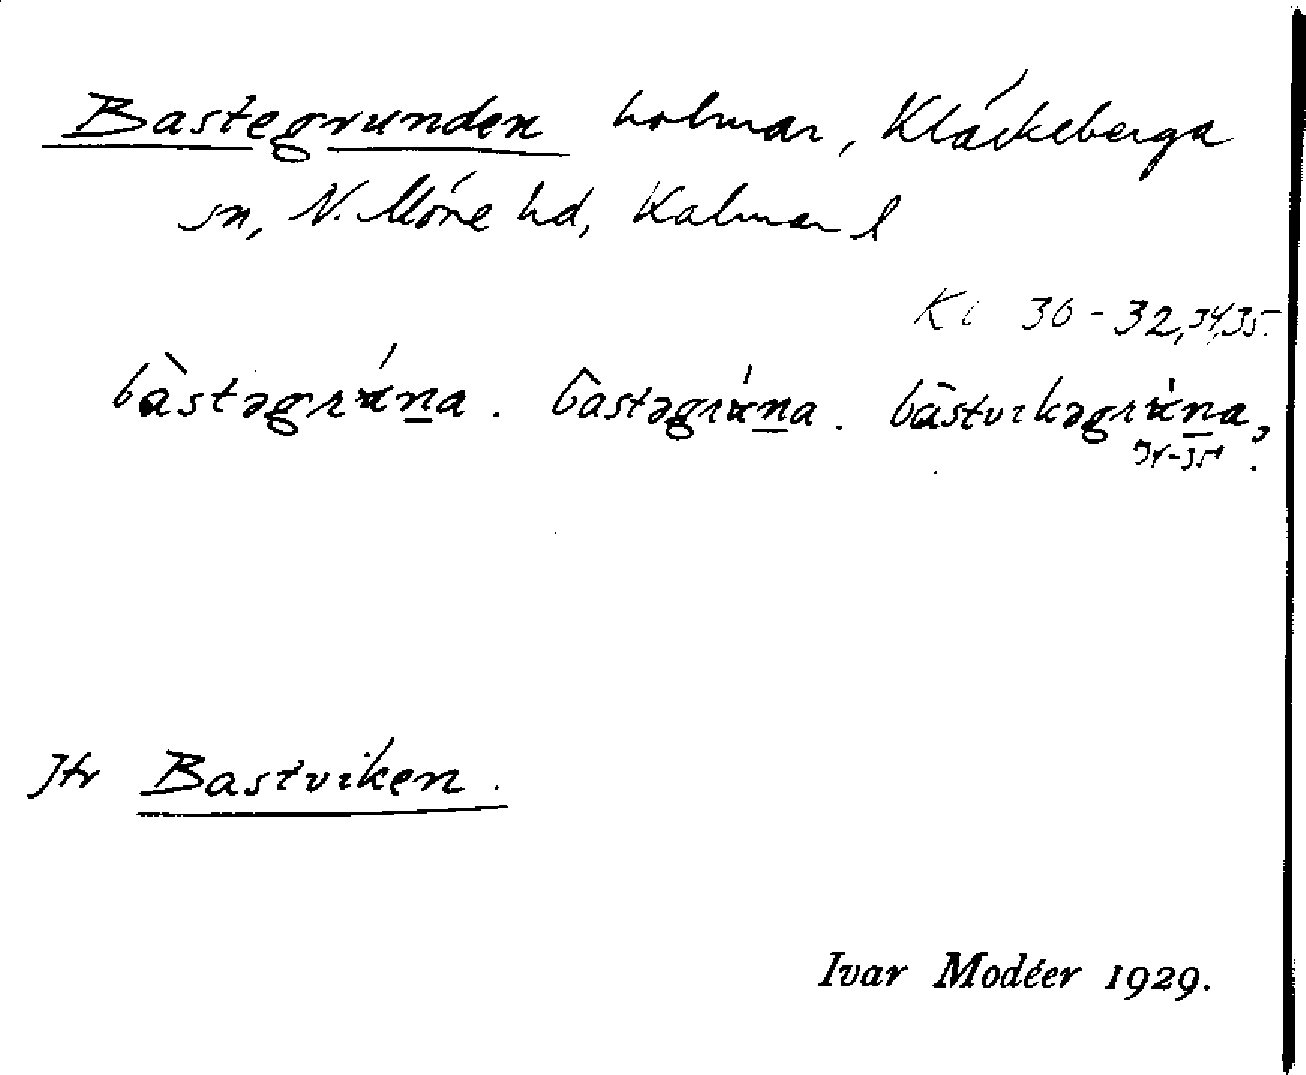 Bastegrunden holmar, Kläckeberga
sn, N. Möre hd, Kalmar l
Ki 30-32,34,35.
bàstəgrána. bâstəgrána. bàstvikəgrána,
34-35.
Jfr Bastviken.
Ivar Modéer 1929.